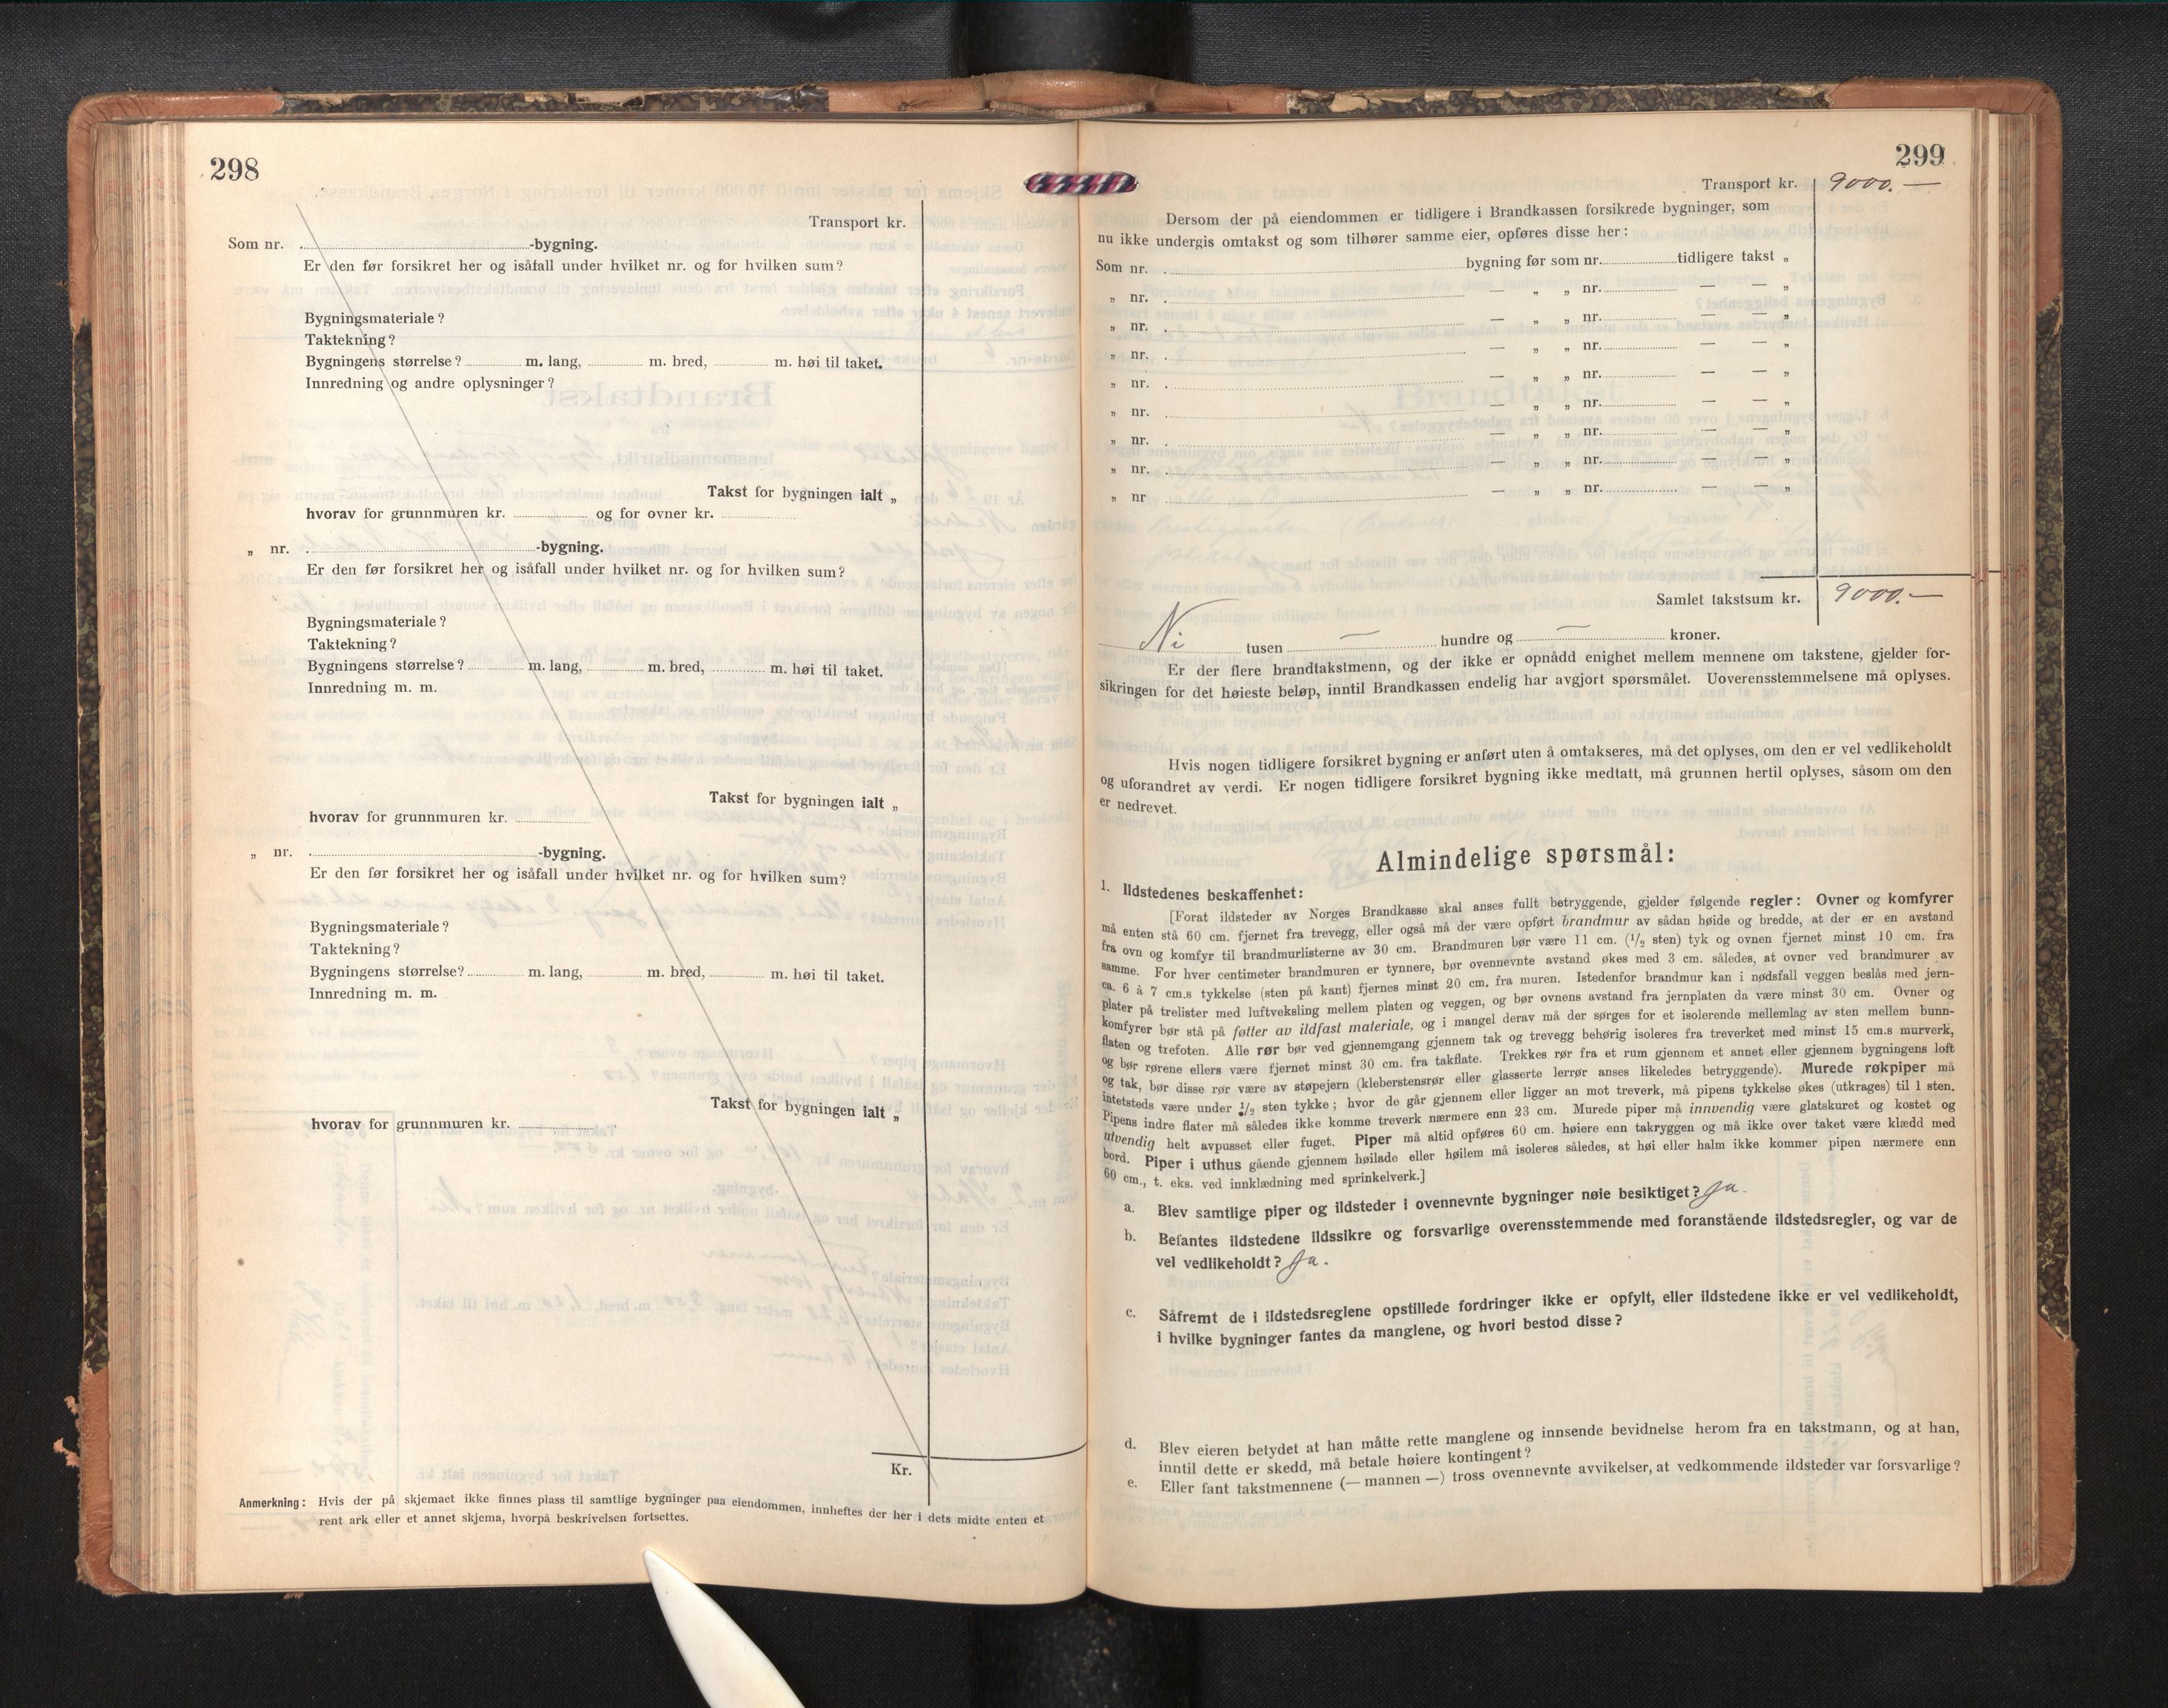 298
Transport kr.
Som nr. -bygning.
Er den før forsikret her og isåfall under hvilket nr. og for hvilken sum?
Bygningsmateriale?
Taktekning?
Bygningens størrelse? m. lang, m. bred, m. høi til taket.
Innredning og andre oplysninger?
Takst for bygningen ialt „
hvorav for grunnmuren kr. og for ovner kr.
„ nr. -bygning.
Er den før forsikret her og isåfall under hvilket nr. og for hvilken sum?
Bygningsmateriale?
Taktekning?
Bygningens størrelse? m. lang, m. bred, m. høi til taket.
Innredning m. m.
Takst for bygningen ialt „
hvorav for grunnmuren kr.
„ nr. -bygning.
Er den før forsikret her og isåfall under hvilket nr. og for hvilken sum?
Bygningsmateriale?
Taktekning?
Bygningens størrelse? m. lang, m. bred, m. høi til taket.
Innredning m. m.
Takst for bygningen ialt „
hvorav for grunnmuren kr.
Kr.
Anmerkning: Hvis der på skjemaet ikke finnes plass til samtlige bygninger paa eiendommen, innheftes der her i dets midte enten et
rent ark eller et annet skjema, hvorpå beskrivelsen fortsettes.
299
Transport kr. 9000.—
Dersom der på eiendommen er tidligere i Brandkassen forsikrede bygninger, som
nu ikke undergis omtakst og som tilhører samme eier, opføres disse her:
Som nr. bygning før som nr. tidligere takst „
„ nr. — „ „ nr. — — „
„ nr. — „ „ nr. — — „
„ nr. — „ „ nr. — — „
„ nr. — „ „ nr. — — „
„ nr. — „ „ nr. — — „
„ nr. — „ „ nr. — — „
„ nr. — „ „ nr. — — „
„ nr — „ „ nr. — — „
Samlet takstsum kr. 9000.—
Ni tusen — hundre og — kroner.
Er der flere brandtakstmenn, og der ikke er opnådd enighet mellem mennene om takstene, gjelder for-
sikringen for det høieste beløp, inntil Brandkassen endelig har avgjort spørsmålet. Uoverensstemmelsene må oplyses.
Hvis nogen tidligere forsikret bygning er anført uten å omtakseres, må det oplyses, om den er vel vedlikeholdt
og uforandret av verdi. Er nogen tidligere forsikret bygning ikke medtatt, må grunnen hertil oplyses, såsom om den
er nedrevet.
Almindelige spørsmål:
1. Ildstedenes beskaffenhet:
[Forat ildsteder av Norges Brandkasse skal anses fullt betryggende, gjelder følgende regler: Ovner og komfyrer
må enten stå 60 cm. fjernet fra trevegg, eller også må der være opført brandmur av sådan høide og bredde, at der er en avstand
fra ovn og komfyr til brandmurlisterne av 30 cm. Brandmuren bør være 11 cm. (1/2 sten) tyk og ovnen fjernet minst 10 cm. fra
samme. For hver centimeter brandmuren er tynnere, bør ovennevnte avstand økes med 3 cm. således, at ovner ved brandmurer av
ca. 6 à 7 cm.s tykkelse (sten på kant) fjernes minst 20 cm. fra muren. Istedenfor brandmur kan i nødsfall veggen beslås med jern-
plater på trelister med luftveksling mellem platen og veggen, og bør ovnens avstand fra jernplaten da være minst 30 cm. Ovner og
komfyrer bør stå på føtter av ildfast materiale, og i mangel derav må der sørges for et isolerende mellemlag av sten mellem bunn-
flaten og trefoten. Alle rør bør ved gjennemgang gjennem tak og trevegg behørig isoleres fra treverket med minst 15 cm.s murverk,
og bør rørene ellers være fjernet minst 30 cm. fra takflate. Trekkes rør fra et rum gjennem et annet eller gjennem bygningens loft
og tak, bør disse rør være av støpejern (kleberstensrør eller glasserte lerrør anses likeledes betryggende). Murede røkpiper må
intetsteds være under 1/2 sten tykke; hvor de går gjennem eller ligger an mot treverk, må pipens tykkelse økes (utkrages) til 1 sten.
Pipens indre flater må således ikke komme treverk nærmere enn 23 cm. Murede piper må innvendig være glatskuret og kostet og
utvendig helt avpusset eller fuget. Piper må altid opføres 60 cm. høiere enn takryggen og må ikke over taket være klædd med
bord. Piper i uthus gående gjennem høilade eller høilem må isoleres således, at høi eller halm ikke kommer pipen nærmere enn
60 cm., t. eks. ved innklædning med sprinkelverk.]
a. Blev samtlige piper og ildsteder i ovennevnte bygninger nøie besiktiget? Ja.
b. Befantes ildstedene ildssikre og forsvarlige overensstemmende med foranstående ildstedsregler, og var de
vel vedlikeholdt? Ja.
c. Såfremt de i ildstedsreglene opstillede fordringer ikke er opfylt, eller ildstedene ikke er vel vedlikeholdt,
i hvilke bygninger fantes da manglene, og hvori bestod disse?
d. Blev eieren betydet at han måtte rette manglene og innsende bevidnelse herom fra en takstmann, og at han,
inntil dette er skedd, må betale høiere kontingent?
e. Eller fant takstmennene (— mannen —) tross ovennevnte avvikelser, at vedkommende ildsteder var forsvarlige?